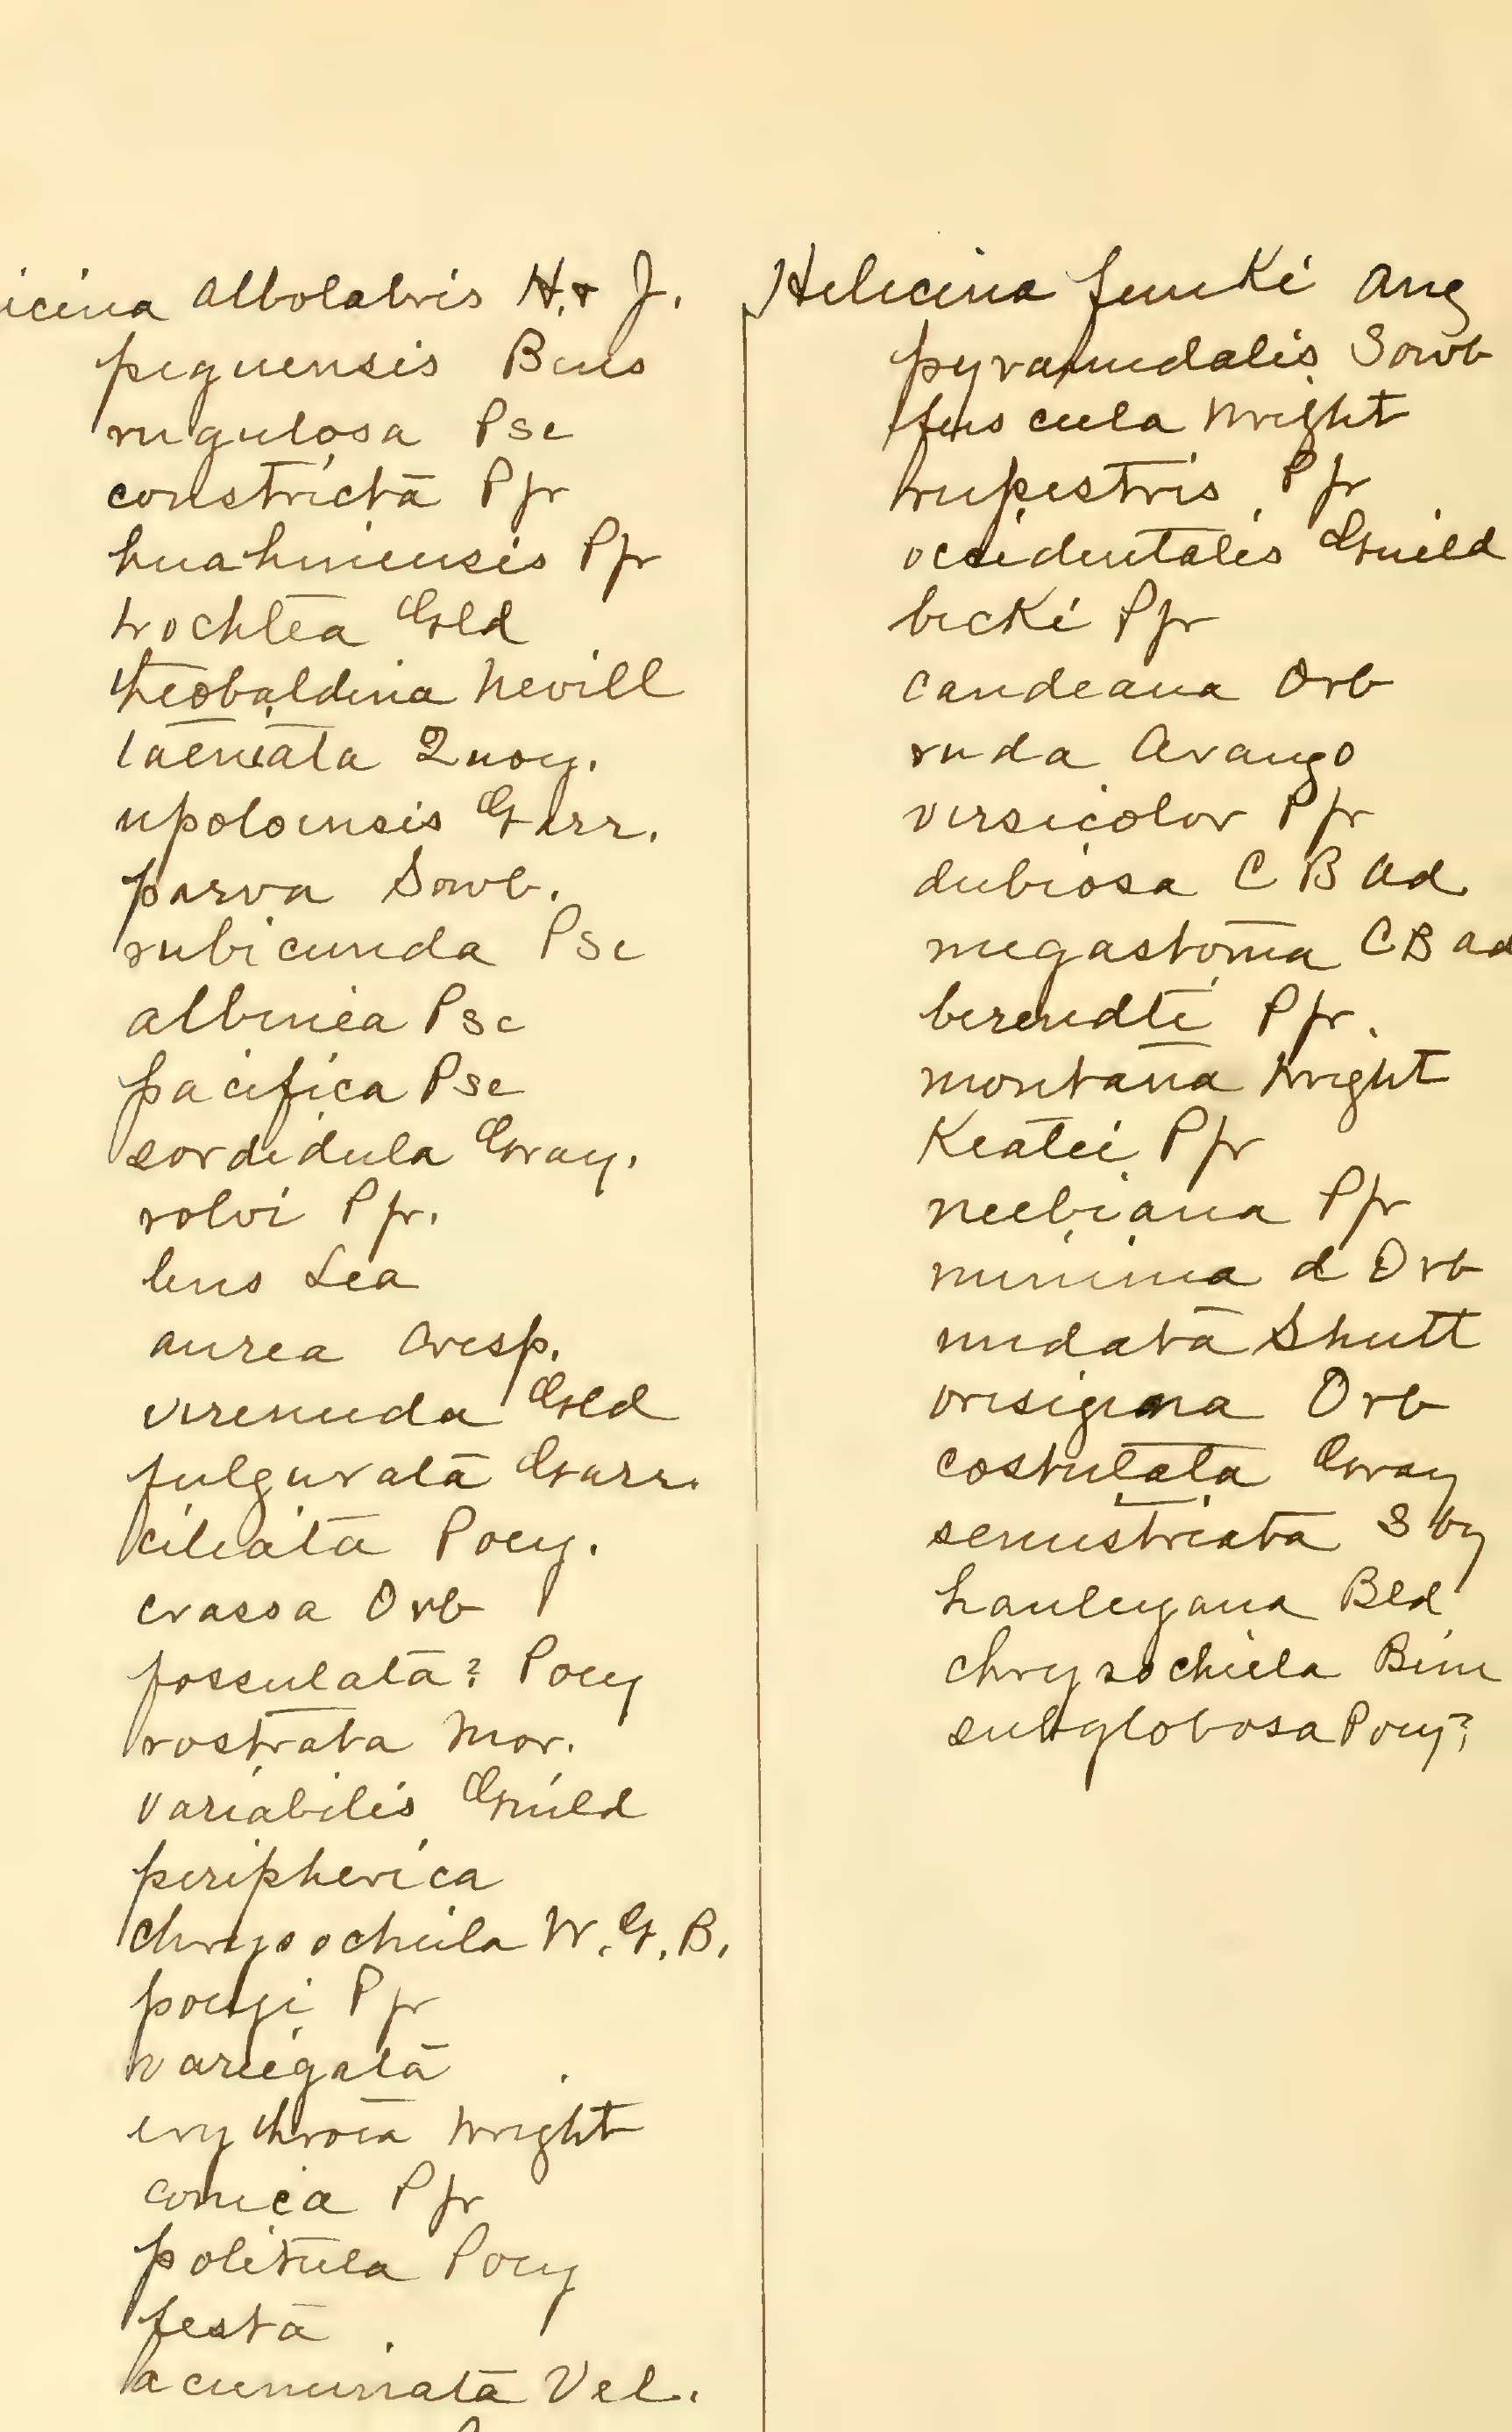 icina albolabris H. & J.
peguensis Bens
rugulosa Pse
constricta Pfr
huahinensis Pfr
trochlea Gld
theobaldina Nevill
taeniata Quoy.
upoloensis Garr.
parva Sowb.
rubicunda Pse
albinea Psc
pacifica Pse
sordidula Gray.
rolvi Pfr.
lens Lea
aurea Cresp.
virenuda Gld
fulgurata Garr.
ciliata Poey.
crassa Orb
fossulata? Poey
rostrata Mor.
variabilis Guild
peripherica
chrysocheila W. G. B.
poeyi Pfr
variegata
erythroea Wright
conica Pfr
politula Poey
festa
acuminata Vel.
Helicina funki Ang
pyramidalis Sowb
fuscula Wright
rupestris Pfr
occidentalis Guild
becki Pfr
candeana Orb
ruda Arango
versicolor Pfr
dubiosa C B Ad
megastoma CB ad
berendti Pfr.
montana Wright
Keatei Pfr
neebiana Pfr
minima d Orb
nudata Shutt
oresigena Orb
costulata Gray
semistriata Sby
hanleyana Bld
chrysochiela Binn
subglobosa Poey?